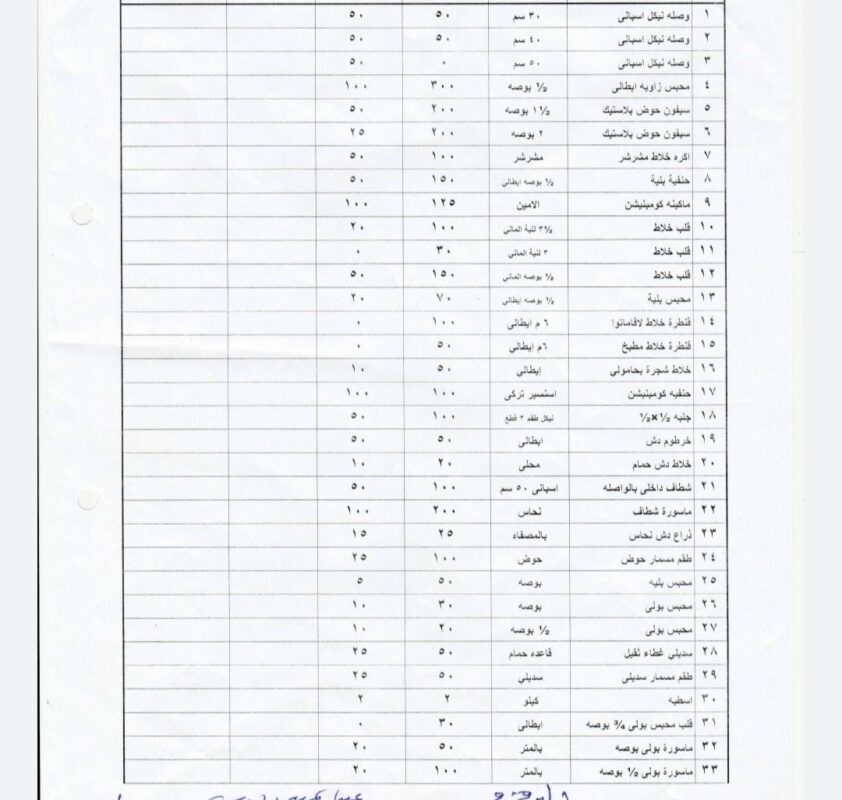 ١ وصله نيكل اسبانى ٣٠ سم ٥٠ ٥٠
٢ وصله نيكل اسبانى ٤٠ سم ٥٠ ٥٠
٣ وصله نيكل اسبانى ٥٠ سم ٠ ٥٠
٤ محبس زاويه ايطالى ½ بوصه ٣٠٠ ١٠٠
٥ سيفون حوض بلاستيك ١½ بوصه ٢٠٠ ٥٠
٦ سيفون حوض بلاستيك ٢ بوصه ٢٠٠ ٢٥
٧ اكره خلاط مشرشر مشرشر ١٠٠ ٥٠
٨ حنفية بلية ½ بوصه ايطالي ١٥٠ ٥٠
٩ ماكينه كومبنيشن الامين ١٢٥ ١٠٠
١٠ قلب خلاط ٣½ لنية الماني ١٠٠ ٢٠
١١ قلب خلاط ٣ لنية الماني ٣٠ ٠
١٢ قلب خلاط ½ بوصه الماني ١٥٠ ٥٠
١٣ محبس بلية ½ بوصه ايطالي ٧٠ ٢٠
١٤ قنطرة خلاط لافامانوا ٦ م ايطالى ١٠٠ ٠
١٥ قنطرة خلاط مطبخ ٦م ايطالي ٥٠ ٠
١٦ خلاط شجرة بحامولي إيطالي ٥٠ ١٠
١٧ حنفيه كومبنيشن استنسير تركى ١٠٠ ١٠٠
١٨ جلبه ½×½ نيكل طقم ٣ قطع ١٠٠ ٥٠
١٩ خرطوم دش ايطالى ٥٠ ٥٠
٢٠ خلاط دش حمام محلى ٢٠ ١٠
٢١ شطاف داخلى بالواصله اسبانى ٥٠ سم ١٠٠ ٥٠
٢٢ ماسورة شطاف نحاس ٢٠٠ ١٠٠
٢٣ ذراع دش نحاس بالمصفاه ٢٥ ١٥
٢٤ طقم مسمار حوض حوض ١٠٠ ٢٥
٢٥ محبس بليه بوصه ٥٠ ٥
٢٦ محبس بولى بوصه ٣٠ ١٠
٢٧ محبس بولى ½ بوصه ٢٠ ١٠
٢٨ سديلي غطاء ثقيل قاعده حمام ٥٠ ٢٥
٢٩ طقم مسمار سديلى سديلي ٥٠ ٢٥
٣٠ اسطبه كيلو ٢ ٢
٣١ قلب محبس بولى ¾ بوصه ايطالى ٣٠ ٠
٣٢ ماسورة بولى بوصه بالمتر ٥٠ ٢٠
٣٣ ماسورة بولى ½ بوصه بالمتر ١٠٠ ٢٠